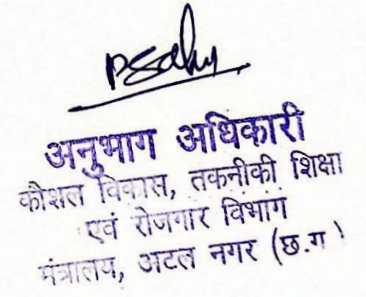 psahu
अनुभाग अधिकारी
कौशल विकास, तकनीकी शिक्षा
एवं रोजगार विभाग
मंत्रालय, अटल नगर (छ.ग)